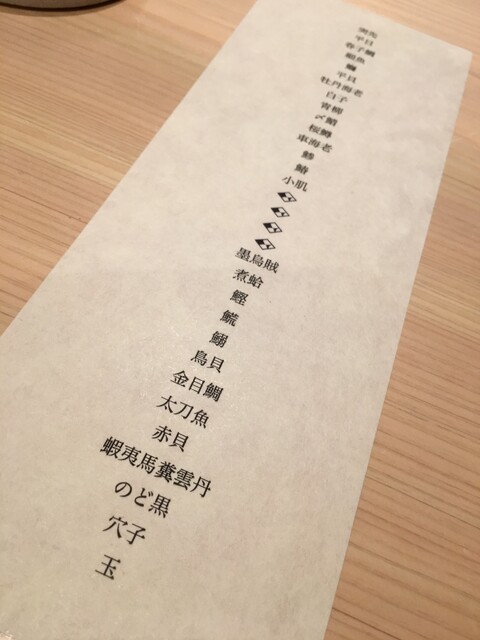 突先
平目
春子鯛
細魚
鰤
平貝
牡丹海老
白子
青柳
〆鯖
桜鱒
車海老
鯵
鰆
小肌
墨烏賊
煮蛤
鰹
鱵
鰯
鳥貝
金目鯛
太刀魚
赤貝
蝦夷馬糞雲丹
のど黒
穴子
玉